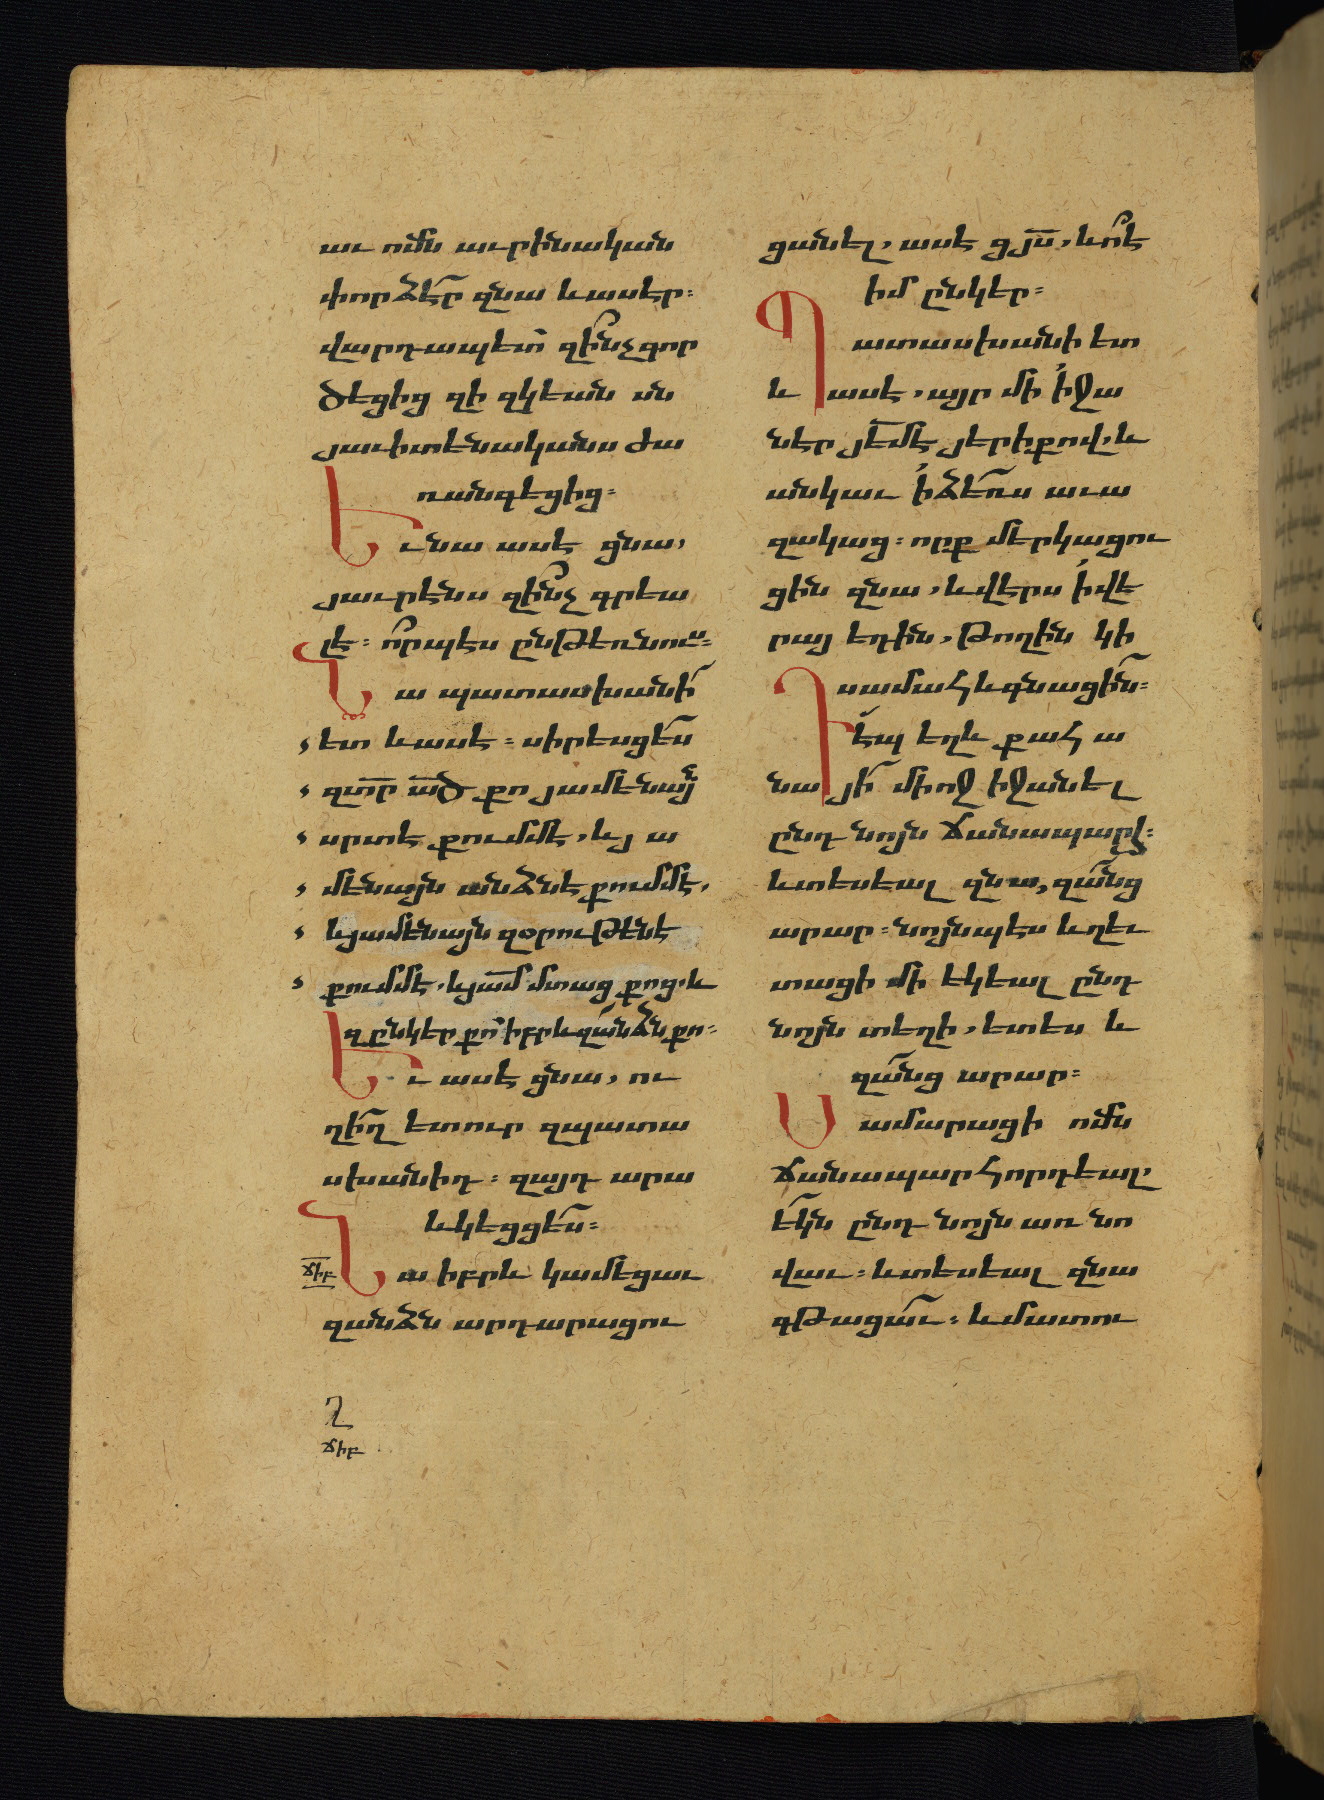 աւ ոմն աւրինական
փորձէր զնա և ասէր։
վարդապետ զի՞նչ գոր
ծեցից զի զկեան սն
յաւիտենականս ժա
ռանգեցից։
Եւ նա ասէ ցնա,
յաւրէնս զի՞նչ գրեա
լ է։ ո՞րպէս ընթեռնուս։
Նա պատասխանի
ետ և ասէ։ սիրեսցես
զտր ած քո յամենայն
սրտէ քումմէ, և յ ա
մենայն անձնէ քումմէ,
և յամենայն զօրութենէ
քումմէ, և յամ մտաց քոց, և
զընկեր քո իբրև զանձն քո։
Եւ ասէ ցնա, ու
ղիղ ետուր զպատա
սխանիդ։ զայդ արա
և կեցցես։
Նա իբրև կամեցաւ
ճիբ
զանձն արդարացու
ցանել, ասէ ց յս, և ո՞ է
իմ ընկեր։
Պատասխանի ետ
և ասէ, այր մի իջա
նէր յեմէ յերիքով, և
անկաւ ի ձեռս աւա
զակաց։ որք մերկացու
ցին զնա, և վէրս ի վե
րայ եդին, թողին կի
սամահ և գնացին։
Դէպ եղև քահ ա
նայի միոջ իջանել
ընդ նոյն ճանապարհ։
և տեսեալ զնա, զանց
արար։ նոյնպէս և ղեւ
տացի մի եկեալ ընդ
նոյն տեղի, ետես և
զանց արար։
Սամարացի ոմն
ճանապարհորդեալ,
եկն ընդ նոյն առ նո
վաւ։ և տեսեալ զնա
գթացաւ։ և մատու
Ղ
ճիբ